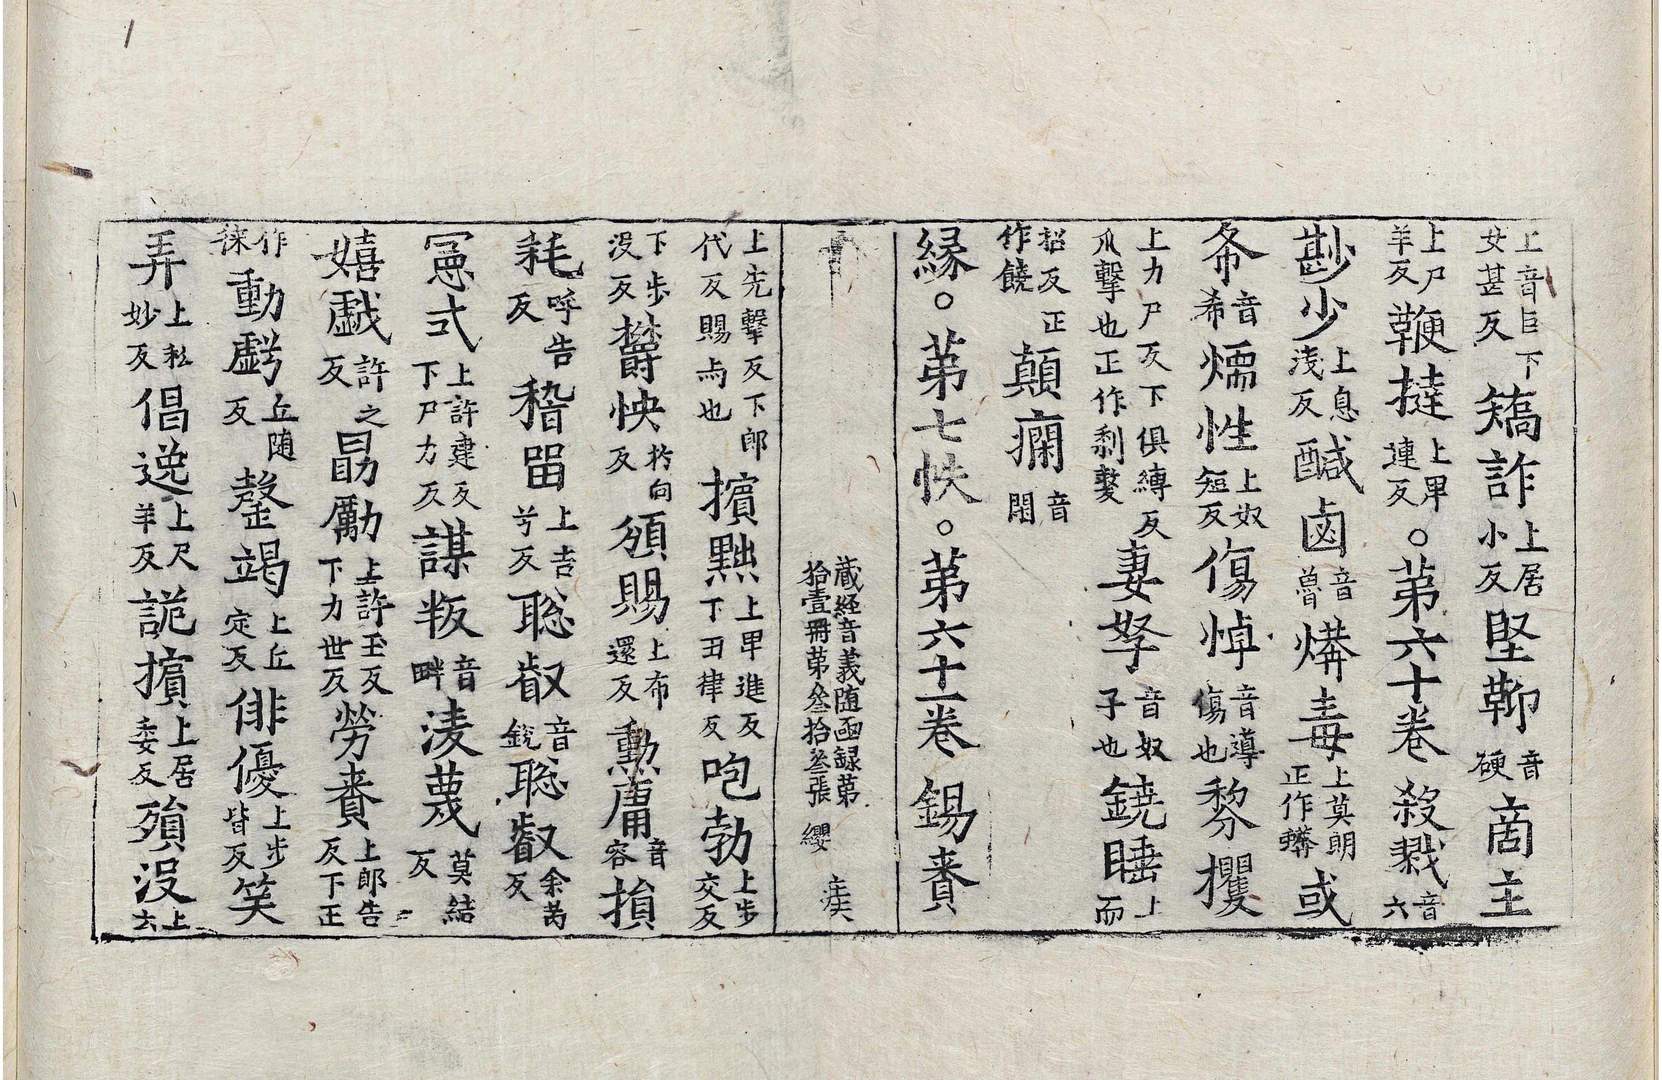 上音巨下女甚反矯詐上居小反堅鞕音硬啇主
上尸羊反鞭撻上早連反。第六十卷殺戮音六
尠少上息淺反醎鹵音魯㷶毒上莫朗正作蠎或
希音希燸性上奴短反傷悼音導傷也黎攫
上力尸反下俱縛反爪擊也正作剺㩴妻孥音奴子也鐃睡上而
招反正作饒顛癇音閑
緣。第七帙。第六十一卷錫賚
藏經音義随函録第拾壹冊苐叁拾叁張 纓 疾
上先擊反下郎代反賜与也擯黜上早進反下丑律反咆勃上步交反
下步没反欝怏於向反頒賜上布還反勲庸音容損
耗呼告反稽留上吉兮反聡叡音銳聡叡余芮反
憲式上許建反下尸力反謀叛音畔淩蔑莫結反
嬉戯許之反勗勵上許玉反下力世反勞賚上郎告反下正
作徠動虧丘随反罄竭上丘定反俳優上步皆反笑
弄上私妙反倡逸上尺羊反詭擯上居委反殞没上云